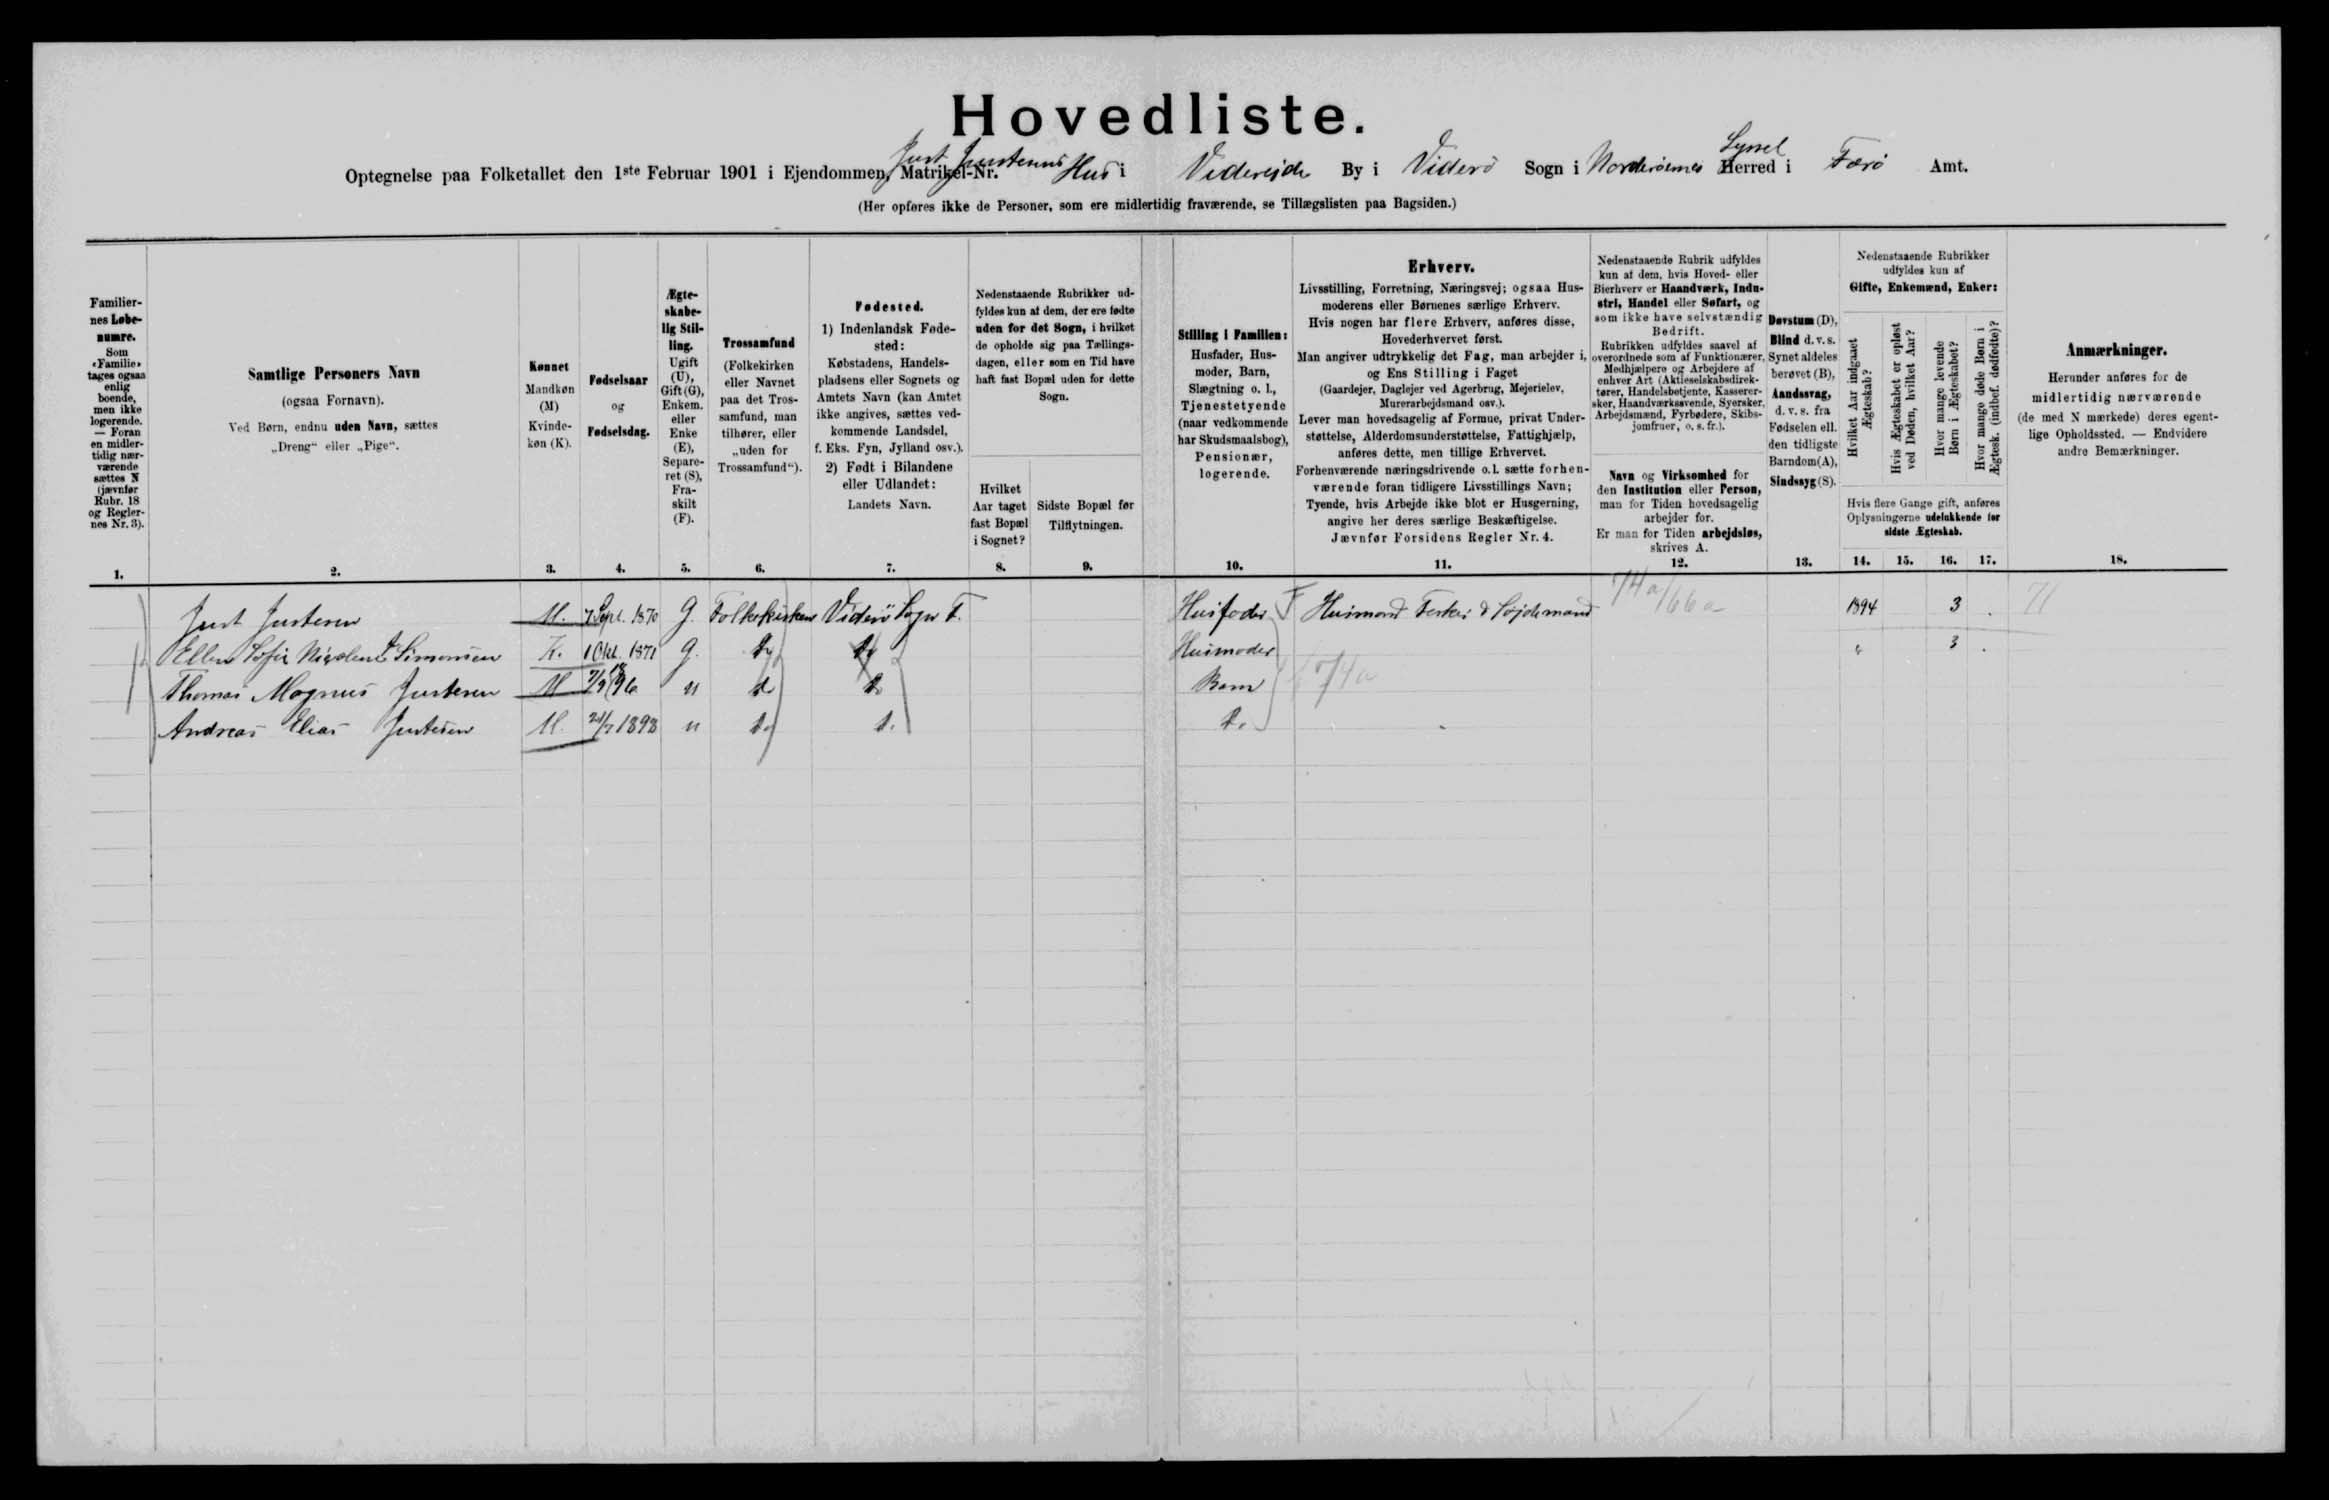 Hovedliste.
Optegnelse paa Folketallet den 1ste Februar 1901 i Ejendommen, Matrikel-Nr. Just Justesens Hus i Videreide By i Viderö Sogn i Norderöernes Herred Syssel i Færö Amt.
(Her opføres ikke de Personer, som ere midlertidig fraværende, se Tillægslisten paa Bagsiden.)
Familiernes Løbenumre.
Som «Familie» tages ogsaa enlig boende, men ikke logerende. — Foran en midlertidig nærværende sættes N (jævnfør Rubr. 18 og Reglernes Nr. 3).
Samtlige Personers Navn
(ogsaa Fornavn).
Ved Børn, endnu uden Navn, sættes
„Dreng“ eller „Pige“.
Kønnet
Mandkøn (M)
Kvindekøn (K).
Fødselsaar
og
Fødselsdag.
Ægteskabelig Stilling.
Ugift (U), Gift (G), Enkem. eller Enke (E), Separeret (S), Fraskilt (F).
Trossamfund
(Folkekirken eller Navnet paa det Trossamfund, man tilhører, eller „uden for Trossamfund“).
Fødested.
1) Indenlandsk Fødested:
Købstadens, Handelspladsens eller Sognets og Amtets Navn (kan Amtet ikke angives, sættes vedkommende Landsdel, f. Eks. Fyn, Jylland osv.).
2) Født i Bilandene eller Udlandet:
Landets Navn.
Nedenstaaende Rubrikker udfyldes kun af dem, der ere fødte uden for det Sogn, i hvilket de opholde sig paa Tællingsdagen, eller som en Tid have haft fast Bopæl uden for dette Sogn.
Hvilket Aar taget fast Bopæl i Sognet?
Sidste Bopæl før Tilflytningen.
Stilling i Familien:
Husfader, Husmoder, Barn, Slægtning o. l., Tjenestetyende (naar vedkommende har Skudsmaalsbog), Pensionær, logerende.
Erhverv.
Livsstilling, Forretning, Næringsvej; ogsaa Husmoderens eller Børnenes særlige Erhverv.
Hvis nogen har flere Erhverv, anføres disse, Hovederhvervet først.
Man angiver udtrykkelig det Fag, man arbejder i, og Ens Stilling i Faget
(Gaardejer, Daglejer ved Agerbrug, Mejerielev, Murerarbejdsmand osv.).
Lever man hovedsagelig af Formue, privat Understøttelse, Alderdomsunderstøttelse, Fattighjælp, anføres dette, men tillige Erhvervet.
Forhenværende næringsdrivende o. l. sætte forhenværende foran tidligere Livsstillings Navn;
Tyende, hvis Arbejde ikke blot er Husgerning, angive her deres særlige Beskæftigelse.
Jævnfør Forsidens Regler Nr. 4.
Nedenstaaende Rubrik udfyldes kun af dem, hvis Hoved- eller Bierhverv er Haandværk, Industri, Handel eller Søfart, og som ikke have selvstændig Bedrift.
Rubrikken udfyldes saavel af overordnede som af Funktionærer, Medhjælpere og Arbejdere af enhver Art (Aktieselskabsdirektører, Handelsbetjente, Kasserersker, Haandværkssvende, Syersker, Arbejdsmænd, Fyrbødere, Skibsjomfruer, o. s. fr.).
Navn og Virksomhed for den Institution eller Person, man for Tiden hovedsagelig arbejder for.
Er man for Tiden arbejdsløs, skrives A.
Døvstum (D),
Blind d. v. s. Synet aldeles berøvet (B),
Aandssvag, d. v. s. fra Fødselen ell. den tidligste Barndom (A),
Sindssyg (S).
Nedenstaaende Rubrikker udfyldes kun af
Gifte, Enkemænd, Enker:
Hvilket Aar indgaaet Ægteskab?
Hvis Ægteskabet er opløst ved Døden, hvilket Aar?
Hvor mange levende Børn i Ægteskabet?
Hvor mange døde Børn i Ægtesk. (indbef. dødfødte)?
Hvis flere Gange gift, anføres Oplysningerne udelukkende for sidste Ægteskab.
Anmærkninger.
Herunder anføres for de midlertidig nærværende (de med N mærkede) deres egentlige Opholdssted. — Endvidere andre Bemærkninger.
1. 2. 3. 4. 5. 6. 7. 8. 9. 10. 11. 12. 13. 14. 15. 16. 17. 18.
Just Justesen M. 7 Sept. 1870 G. Folkekirken Viderö Sogn F. Husfader F Husmand Fisker & 74a/66a 1894 3 . 71
Ellen Sofie Nicoline Simonsen K. 1 Okt. 1871 G. Do Do Husmoder " 3 .
Thomas Magnus Justesen M 7/9 1896 u do Do Barn 74a
Andreas Elias Justesen M. /7 1898 u do d. Do